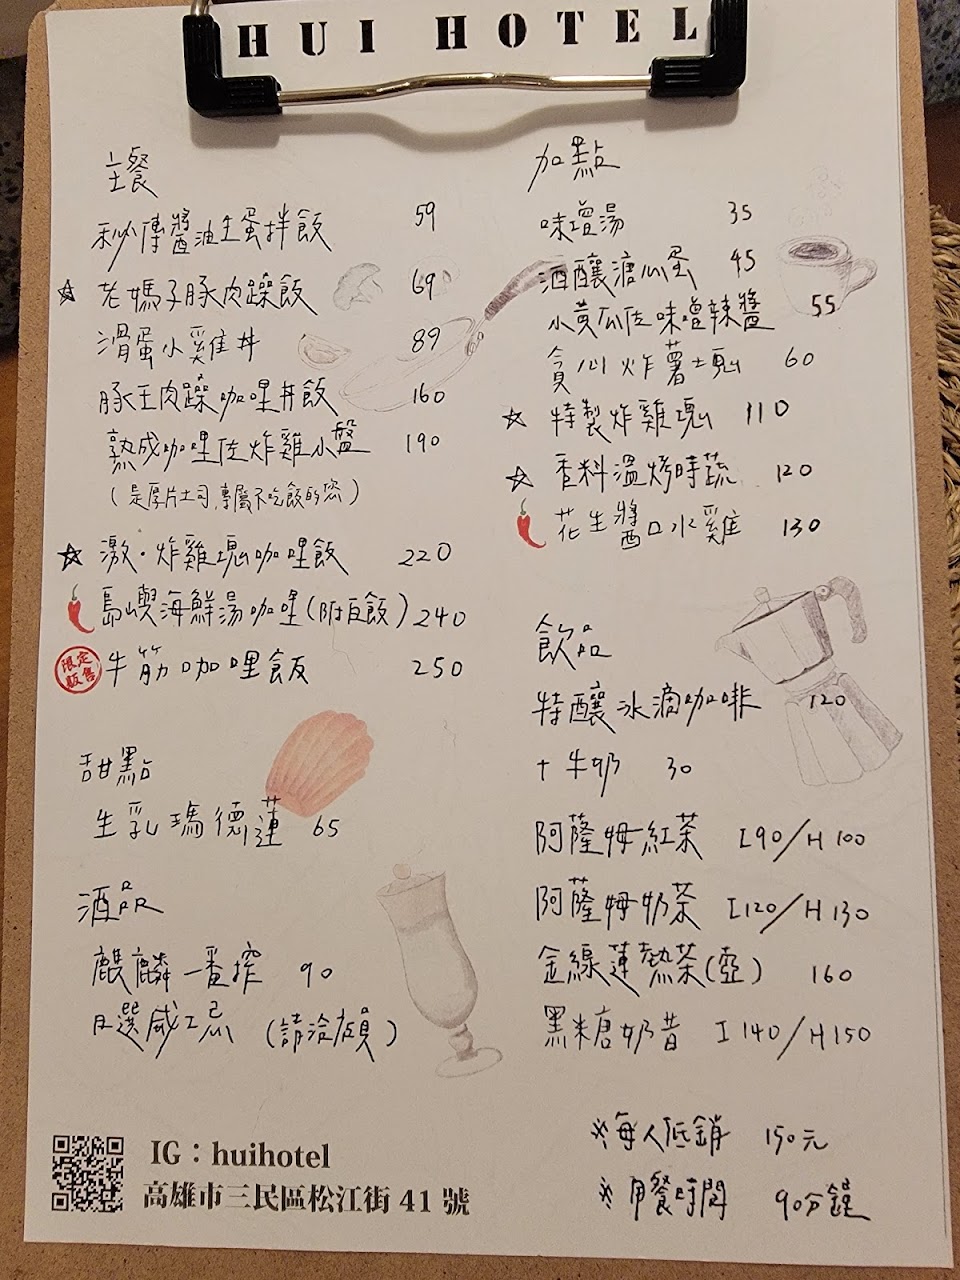 HUI HOTEL
主餐
秘傳醬油生蛋拌飯 59
老媽子豚肉躁飯 69
滑蛋小雞丼 89
豚王肉躁咖哩丼飯 160
熟成咖哩佐炸雞小盤 190
(是厚片土司,專屬不吃飯的您)
激·炸雞塊咖哩飯 220
島嶼海鮮湯咖哩(附白飯) 240
限定販售
牛筋咖哩飯 250
甜點
生乳瑪德蓮 65
酒品
麒麟一番搾 90
日選威士忌 (請洽店員)
加點
味增湯 35
酒釀溏心蛋 45
小黃瓜佐味增辣醬 55
貪心炸薯塊 60
特製炸雞塊 110
香料溫烤時蔬 120
花生醬口水雞 130
飲品
特釀冰滴咖啡 120
+牛奶 30
阿薩姆紅茶 I 90/H 100
阿薩姆奶茶 I 120/H 130
金線蓮熱茶(壺) 160
黑糖奶昔 I 140/H 150
※每人低銷 150元
※用餐時間 90分鐘
IG:huihotel
高雄市三民區松江街 41 號